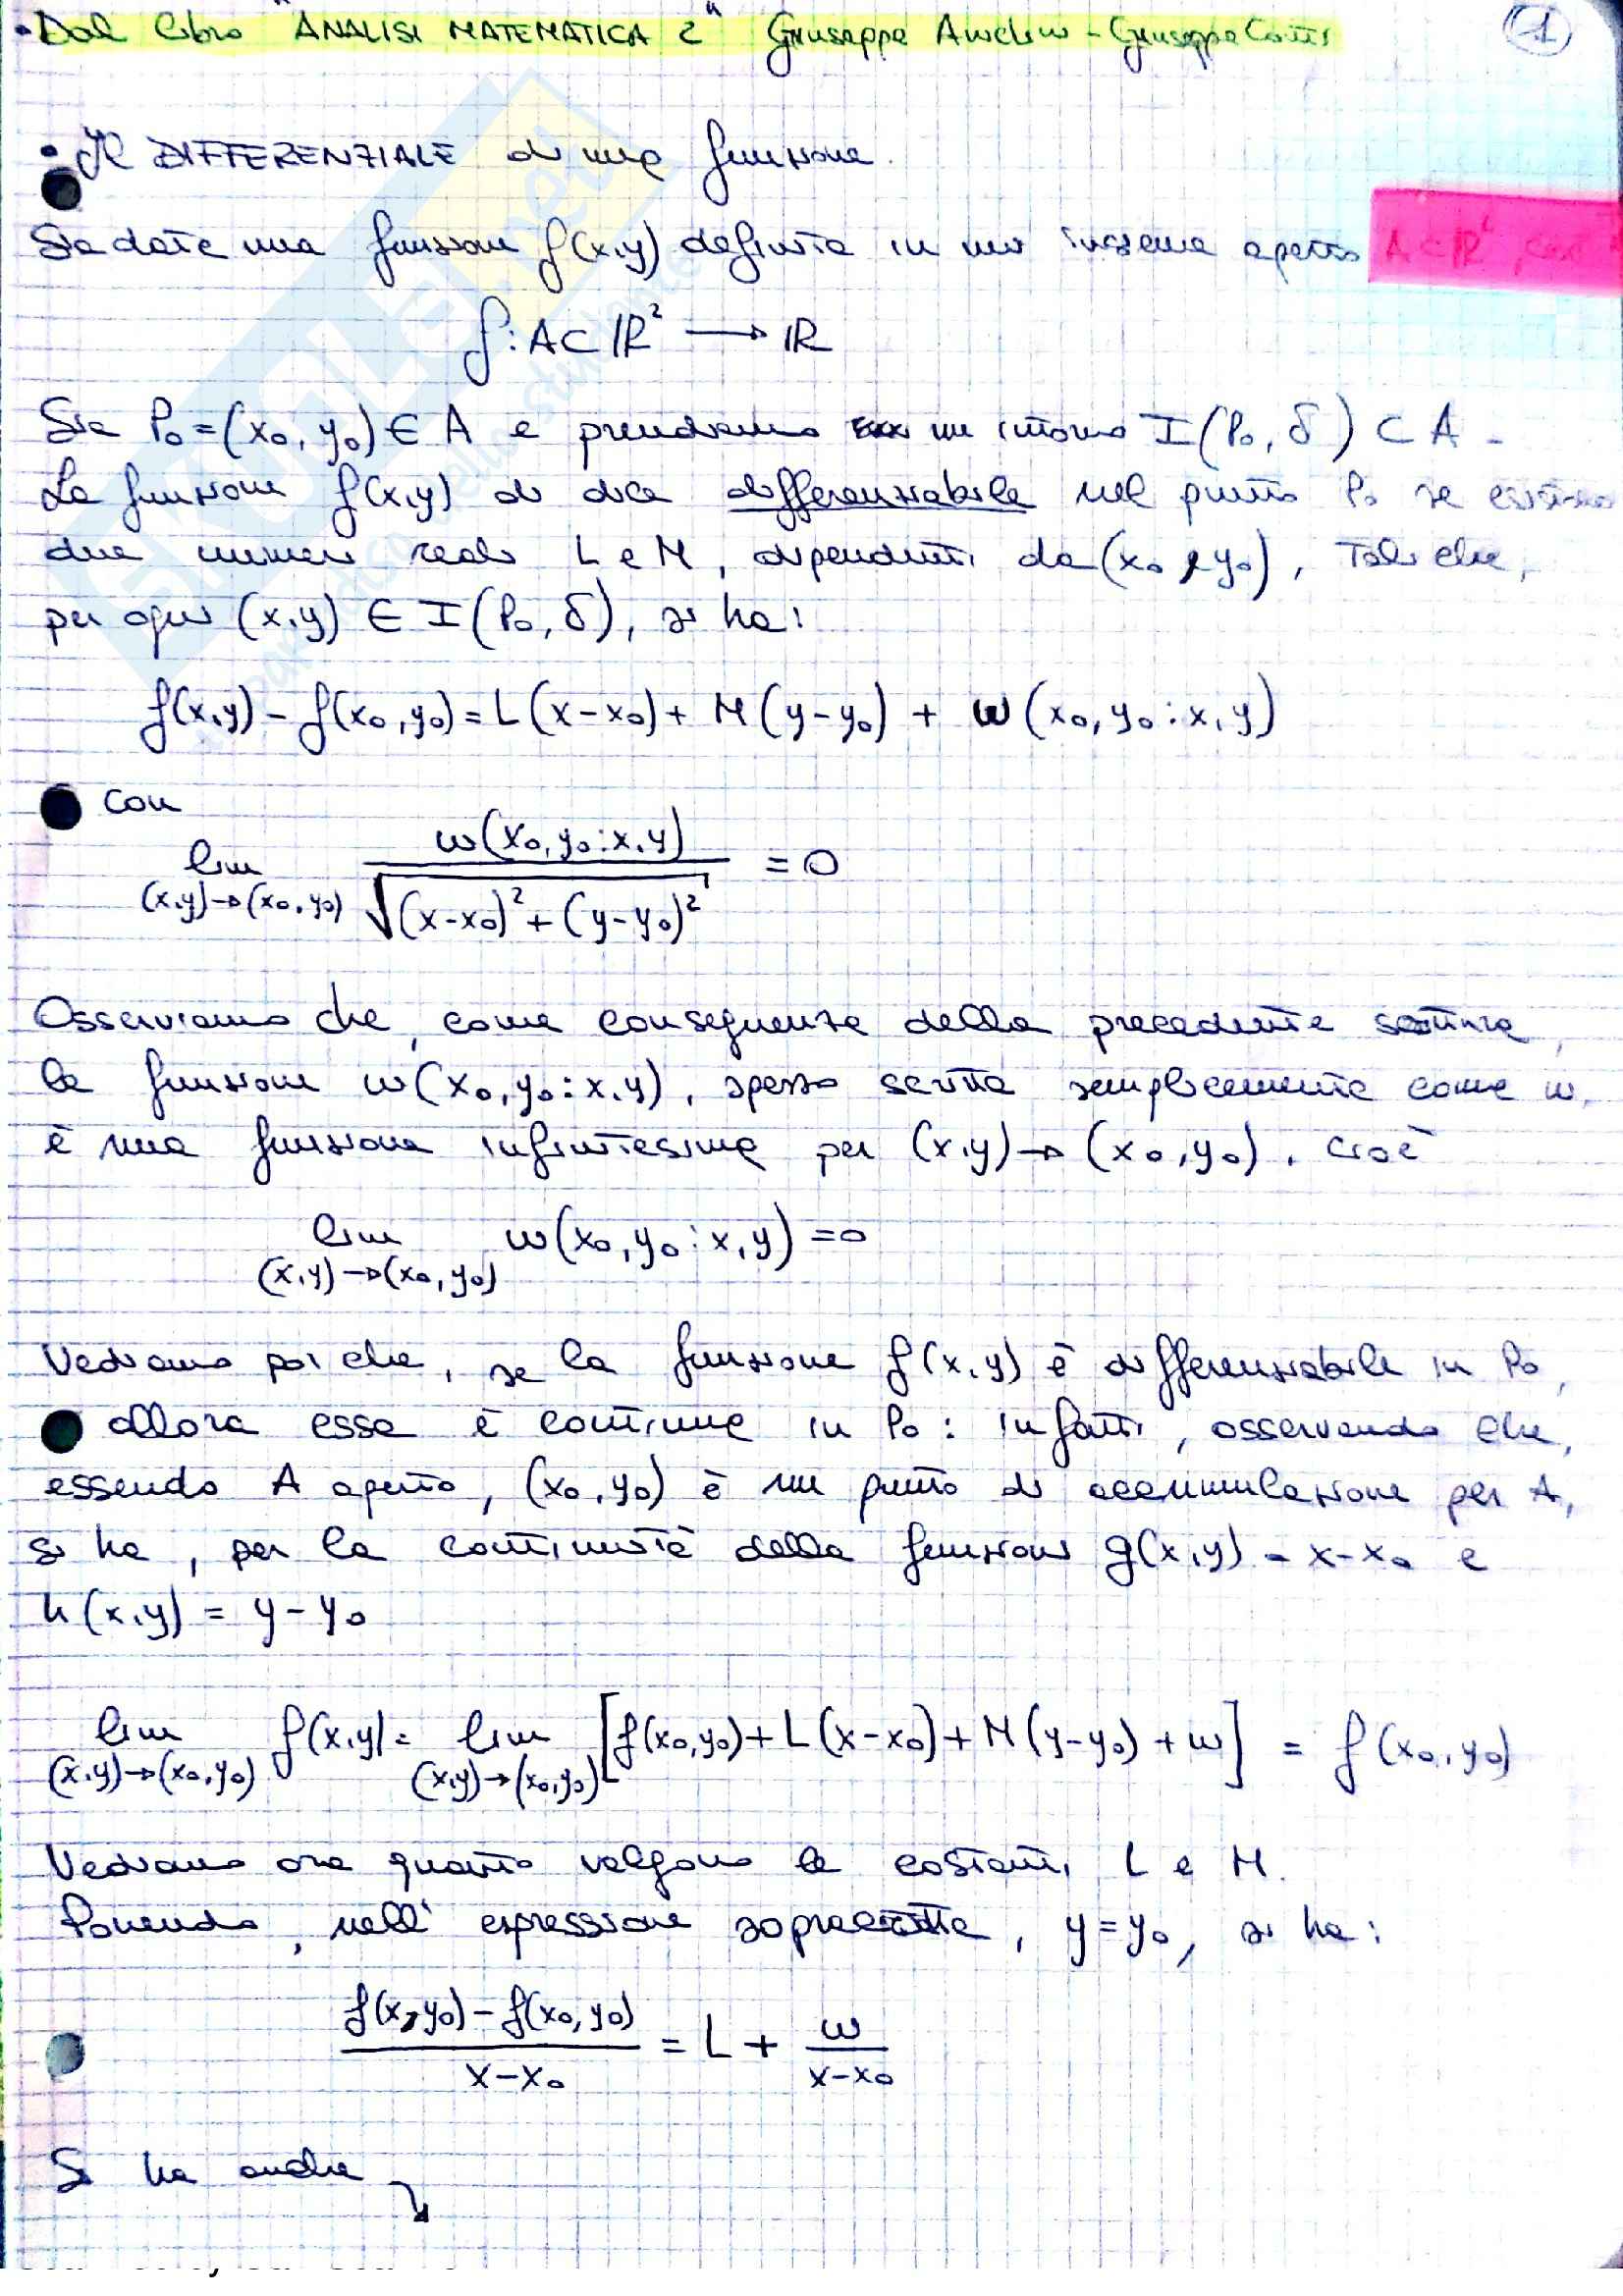 • Dal libro "ANALISI MATEMATICA 2" Giuseppe Anichini - Giuseppe Conti
1
• Il DIFFERENZIALE di una funzione.
Sia data una funzione f(x,y) definita in un insieme aperto A⊂ℝ², cioè
f: A⊂ℝ² → ℝ
Sia P₀=(x₀,y₀)∈A e prendiamo un intorno I(P₀,δ)⊂A.
La funzione f(x,y) di dice differenziabile nel punto P₀ se esistono
due numeri reali L e M, dipendenti da (x₀,y₀), tali che,
per ogni (x,y)∈I(P₀,δ), si ha:
f(x,y)-f(x₀,y₀)=L(x-x₀)+M(y-y₀)+w(x₀,y₀:x,y)
con
lim (x,y)→(x₀,y₀) w(x₀,y₀:x,y) / √((x-x₀)²+(y-y₀)²) = 0
Osserviamo che, come conseguenza della precedente scrittura,
la funzione w(x₀,y₀:x,y), spesso scritta semplicemente come w,
è una funzione infinitesima per (x,y)→(x₀,y₀), cioè
lim (x,y)→(x₀,y₀) w(x₀,y₀:x,y)=0
Vediamo poi che, se la funzione f(x,y) è differenziabile in P₀,
allora essa è continua in P₀: infatti, osservando che,
essendo A aperto, (x₀,y₀) è un punto di accumulazione per A,
si ha, per la continuità delle funzioni g(x,y)=x-x₀ e
h(x,y)=y-y₀
lim (x,y)→(x₀,y₀) f(x,y)= lim (x,y)→(x₀,y₀) [f(x₀,y₀)+L(x-x₀)+M(y-y₀)+w] = f(x₀,y₀)
Vediamo ora quanto valgono le costanti L e M.
Ponendo, nell'espressione sopracitata, y=y₀, si ha:
(f(x,y₀)-f(x₀,y₀)) / (x-x₀) = L + w / (x-x₀)
Si ha anche